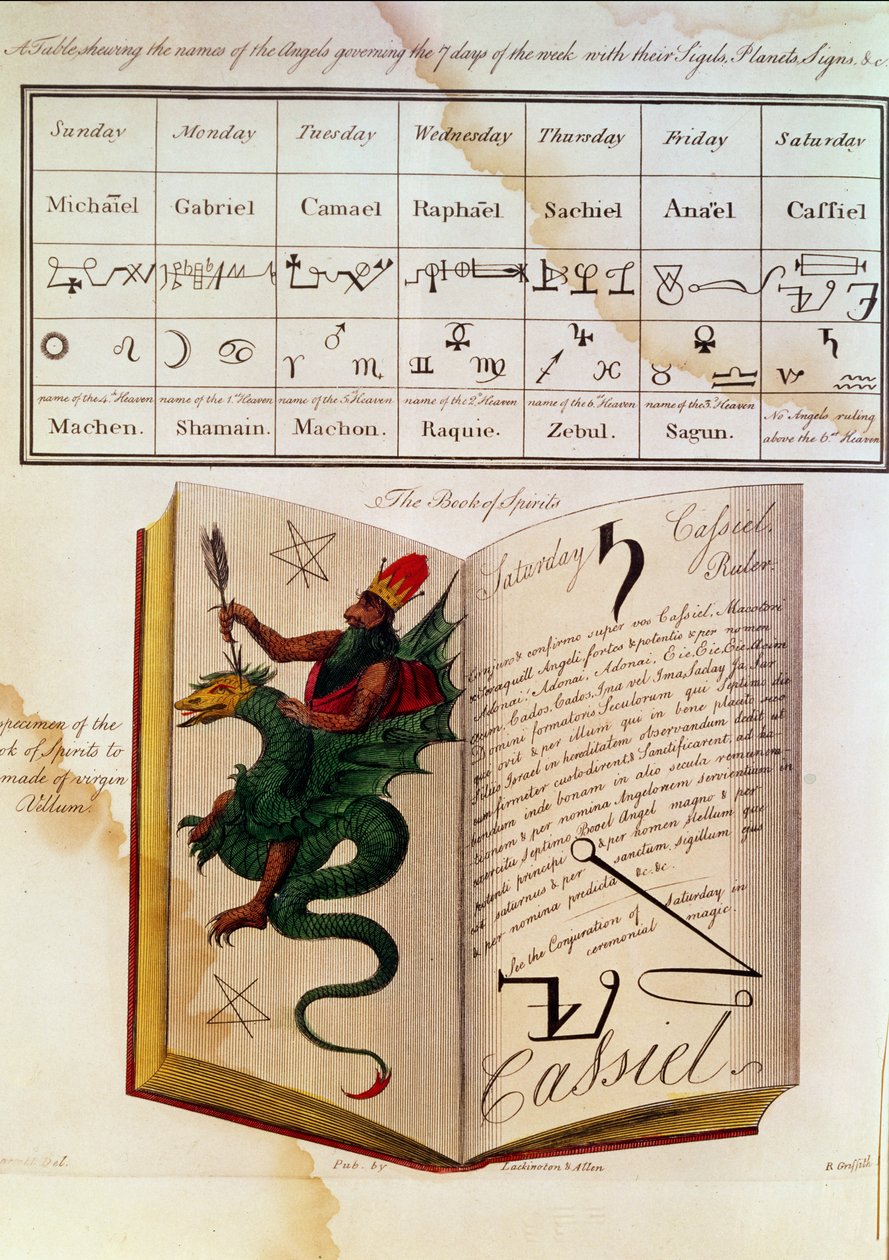 A Table, shewing the names of the Angels governing the 7 days of the week with their Sigils, Planets, Signs, &c.
Sunday Monday Tuesday Wednesday Thursday Friday Saturday
Michaïel Gabriel Camael Raphaël Sachiel Anaël Caſſiel
☉ ♌ ☽ ♋ ♂ ♈ ♏ ☿ ♊ ♍ ♃ ♐ ♓ ♀ ♉ ♎ ♄ ♑ ♒
name of the 4.th Heaven name of the 1.st Heaven name of the 5.th Heaven name of the 2.d Heaven name of the 6.th Heaven name of the 3.d Heaven No Angels ruling
Machen. Shamain. Machon. Raquie. Zebul. Sagun. above the 6.th Heaven
The Book of Spirits
Saturday ♄ Caſsiel,
Ruler.
Conjuro & confirmo super vos Caſsiel, Macotori
& Seraquiell Angeli fortes & potentis & per nomen
Adonai, Adonai, Adonai, Eie, Eie, Eie, Acim
acim Cados, Cados, Ina vel Ima, Saday Ja, Sar
Domini formatoris Seculorum qui Septimo die
quie vit & per illum qui in bene placito suo
filiis Israel in hereditatem observandum dedit ut
eum firmeter custodirent & Sanctificarent, ad ha-
bendum inde bonam in alio secula remunera-
tionem & per nomina Angelorem servientium in
exercitu Septimo Booel Angel magno & per
potenti principi & per nomen stellum que
est saturnus & per sanctum sigillum ejus
& per nomina predicta &c. &c.
See the Conjuration of Saturday in
ceremonial magic.
Caſsiel
specimen of the
of Spirits to
made of virgin
Vellum.
Del.
Pub. by Lackington & Allen
R Griffith